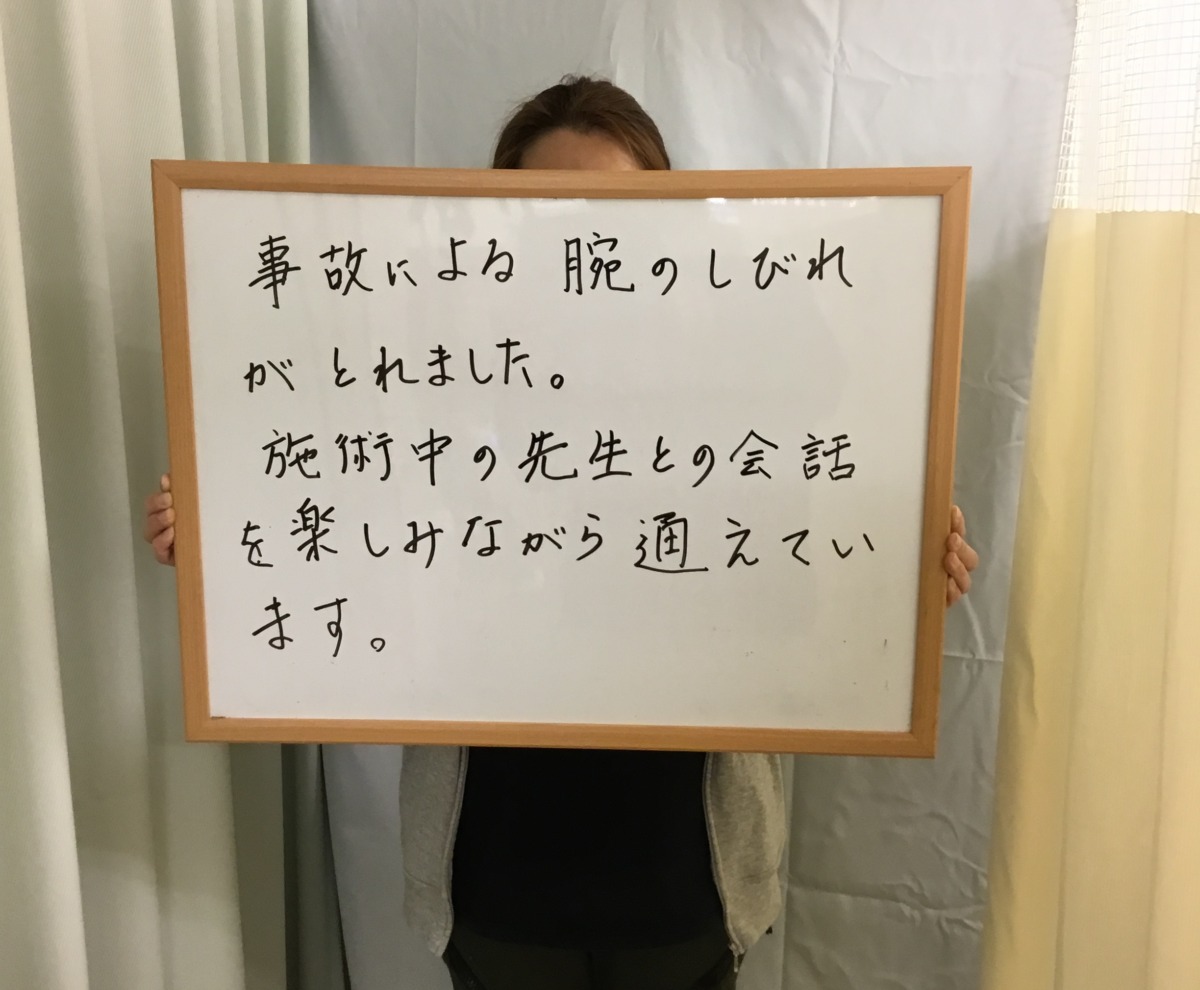 事故による 腕のしびれ
が とれました。
施術中の先生との会話
を楽しみながら通えてい
ます。